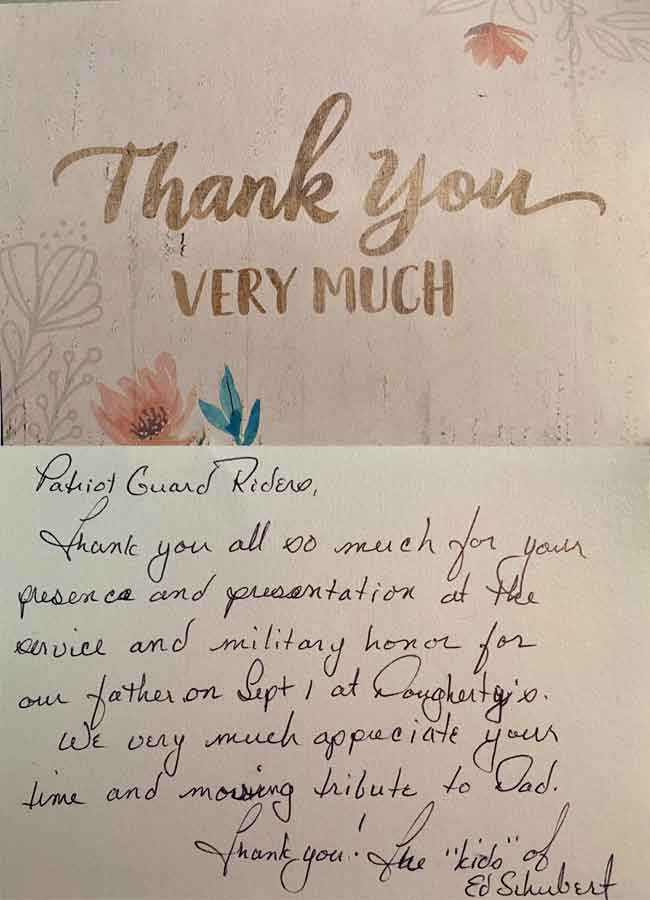 Thank You
VERY MUCH
Patriot Guard Riders,
Thank you all so much for your
presence and presentation at the
service and military honor for
our father on Sept 1 at Dougherty's.
We very much appreciate your
time and moving tribute to Dad.
Thank you! The "kids" of
Ed Schubert